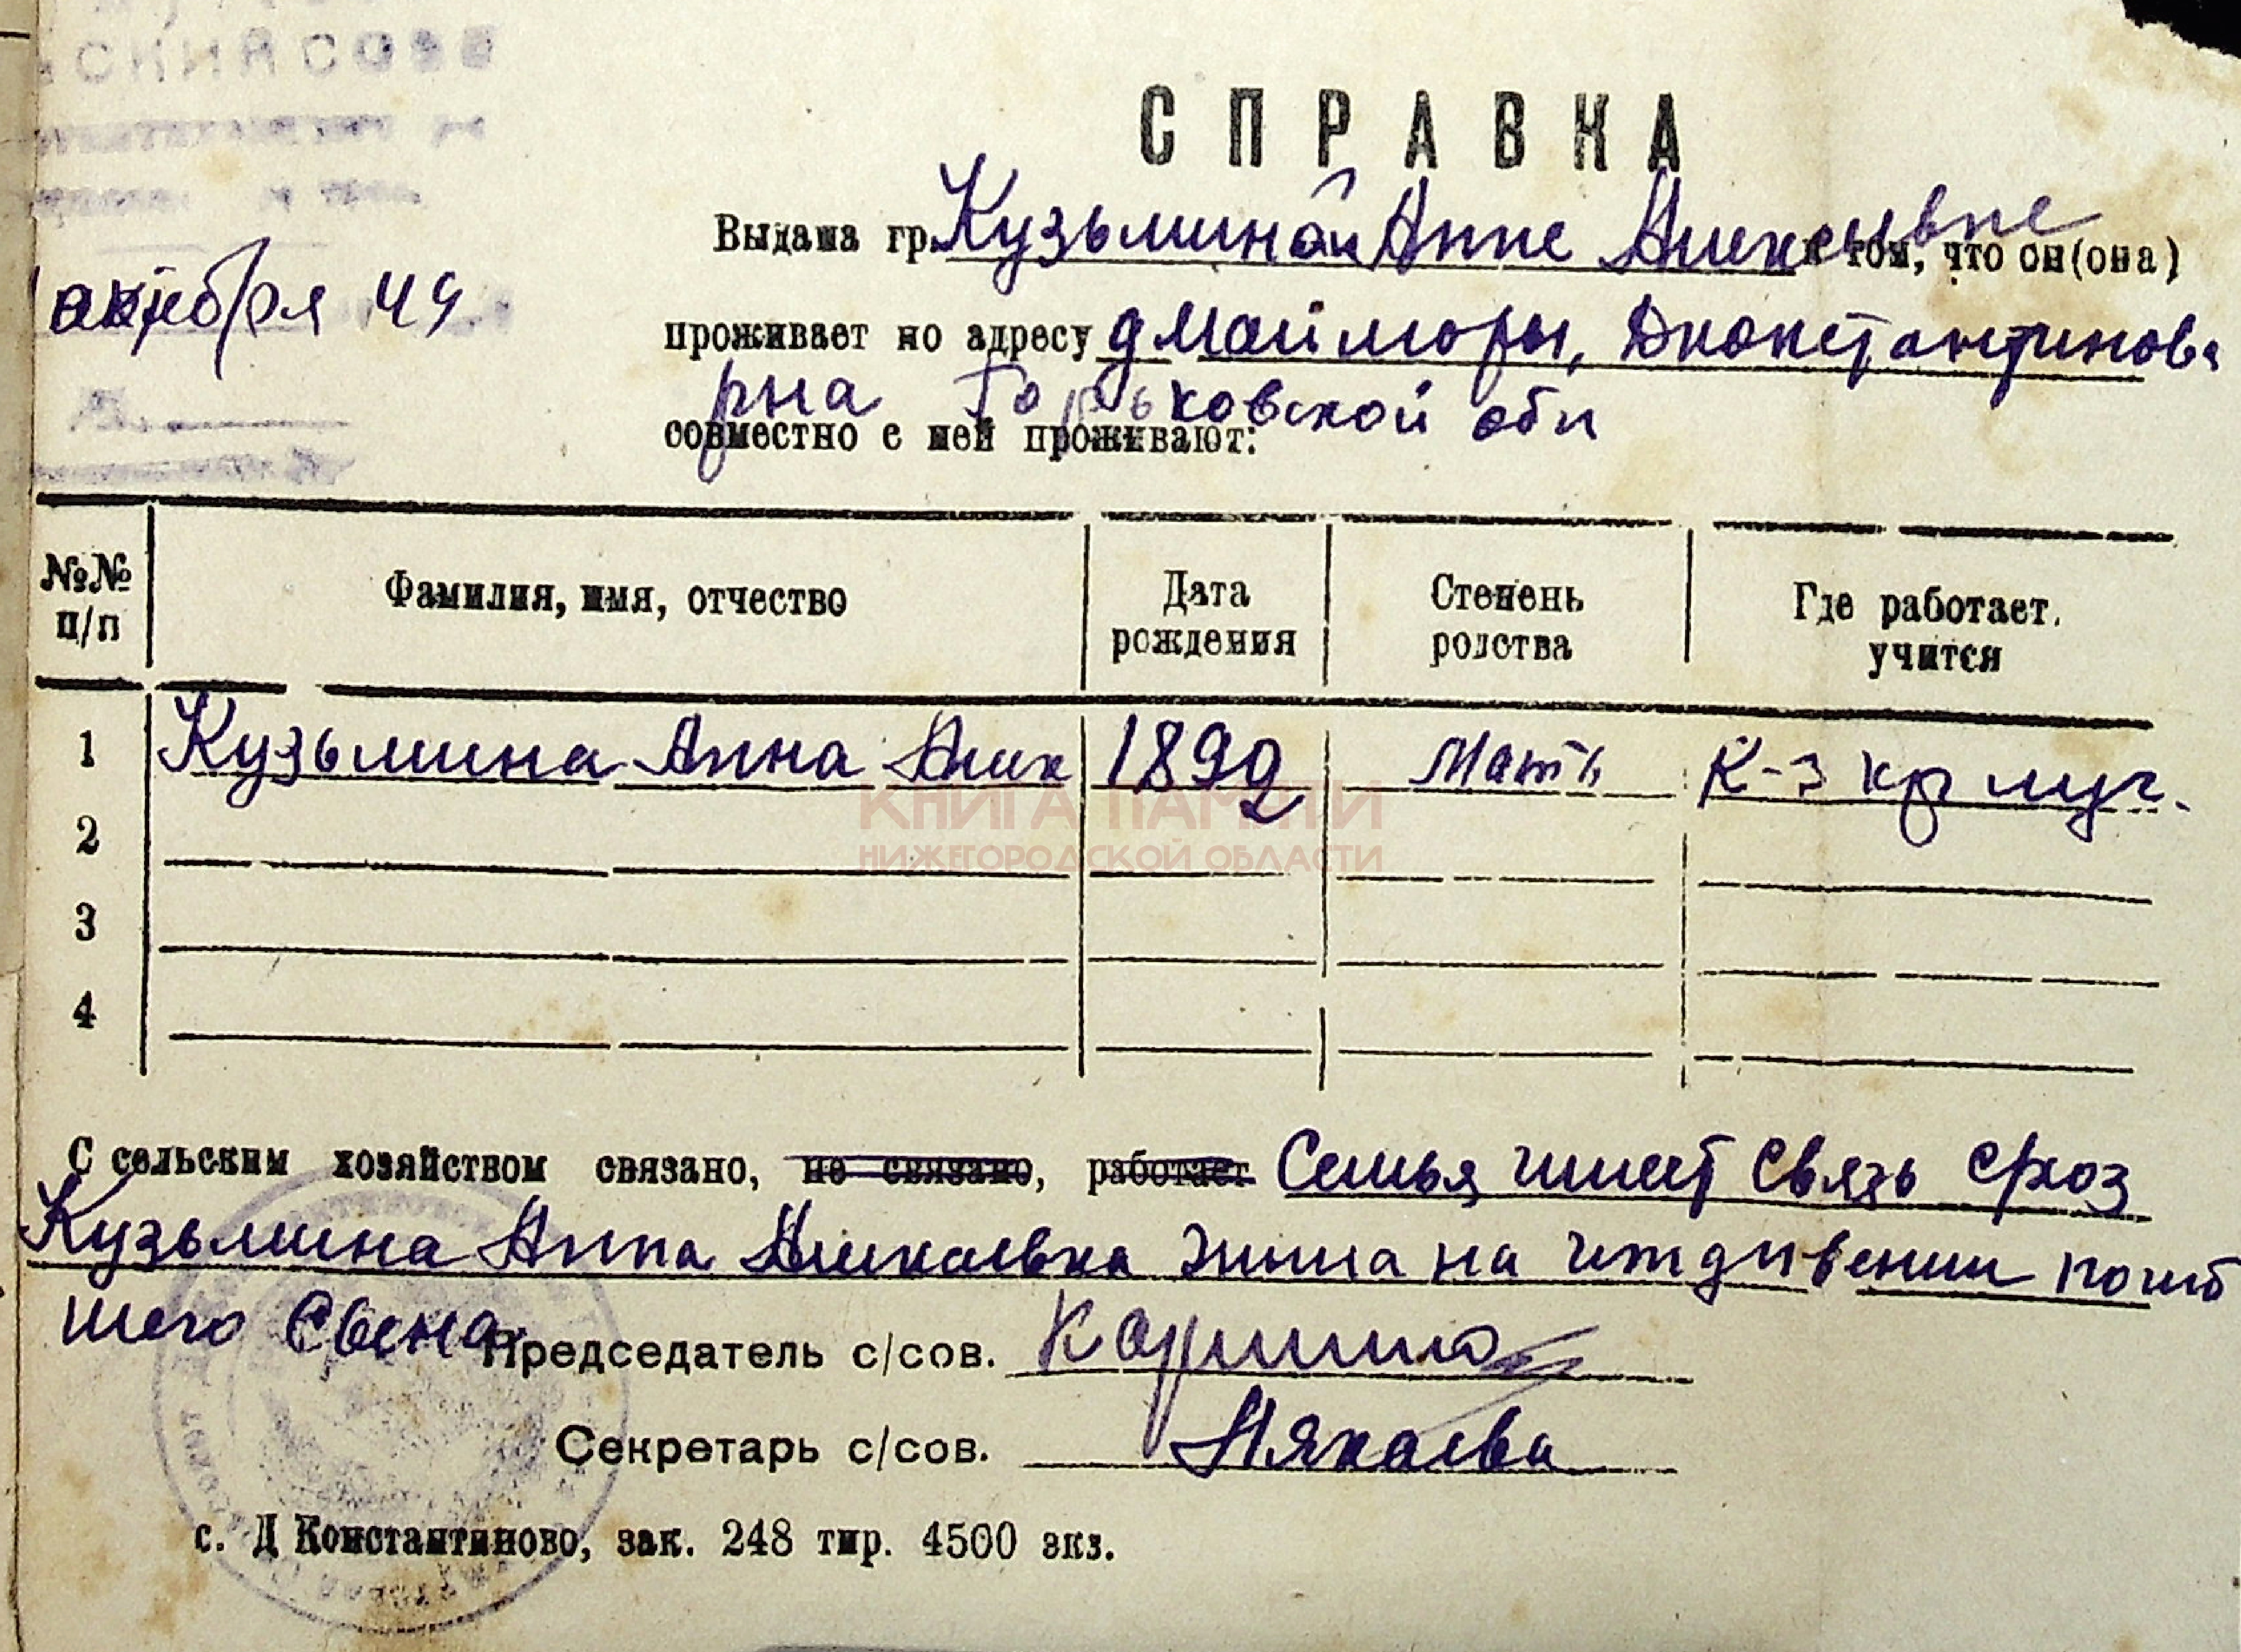 СКИЙ СОВЕ
СПРАВКА
Выдана гр. Кузьминой Анне Алексеевне в том, что он(она)
октября 49
проживает по адресу д Майморы, Дконстантинова
рна Горьковской обл
совместно с ней проживают:
№№ п/п Фамилия, имя, отчество Дата рождения Степень родства Где работает, учится
1 Кузьмина Анна Алек 1892 Мать К-з кр луч.
2
3
4
С сельским хозяйством связано, не связано, работает Семья имеет связь
Кузьмина Анна жила на иждивении погиб
шего Сына.
Председатель с/сов.
Секретарь с/сов.
с. Д Константиново, зак. 248 тир. 4500 экз.
КНИГА ПАМЯТИ
НИЖЕГОРОДСКОЙ ОБЛАСТИ